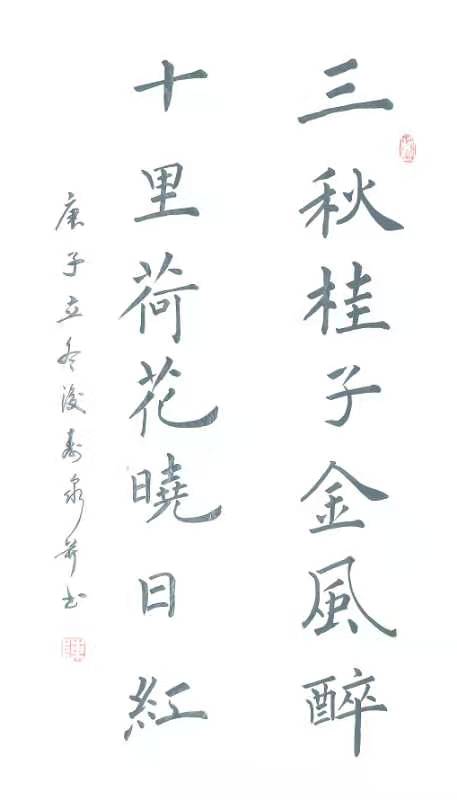 三秋桂子金風醉
十里荷花曉日紅
庚子立冬後壽泉並书